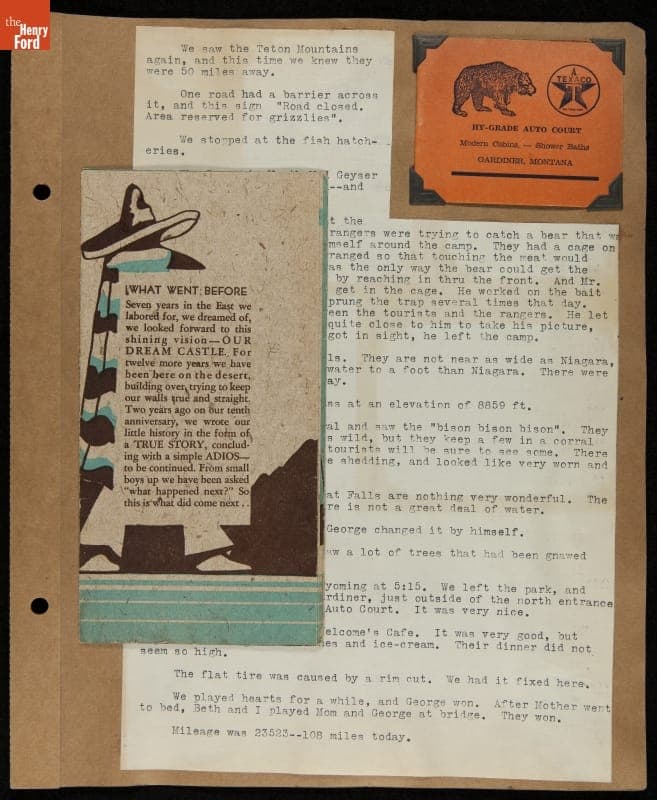 the
Henry
Ford
We saw the Teton Mountains
again, and this time we knew they
were 50 miles away.
One road had a barrier across
it, and this sign "Road closed.
Area reserved for grizzlies".
We stopped at the fish hatch-
eries.
Geyser
--and
TEXACO
HY-GRADE AUTO COURT
Modern Cabins, — Shower Baths
GARDINER, MONTANA
t the
rangers were trying to catch a bear that w
mself around the camp. They had a cage on
ranged so that touching the meat would
as the only way the bear could get the
by reaching in thru the front. And Mr.
get in the cage. He worked on the bait
prung the trap several times that day.
een the tourists and the rangers. He let
quite close to him to take his picture,
got in sight, he left the camp.
ls. They are not near as wide as Niagara,
water to a foot than Niagara. There were
ay.
ss at an elevation of 8859 ft.
al and saw the "bison bison bison". They
s wild, but they keep a few in a corral
tourists will be sure to see some. There
e shedding, and looked like very worn and
at Falls are nothing very wonderful. The
re is not a great deal of water.
George changed it by himself.
aw a lot of trees that had been gnawed
yoming at 5:15. We left the park, and
rdiner, just outside of the north entrance
Auto Court. It was very nice.
elcome's Cafe. It was very good, but
es and ice-cream. Their dinner did not
seem so high.
The flat tire was caused by a rim cut. We had it fixed here.
We played hearts for a while, and George won. After Mother went
to bed, Beth and I played Mom and George at bridge. They won.
Mileage was 23523--108 miles today.
WHAT WENT BEFORE
Seven years in the East we
labored for, we dreamed of,
we looked forward to this
shining vision—OUR
DREAM CASTLE. For
twelve more years we have
been here on the desert,
building over, trying to keep
our walls true and straight.
Two years ago on our tenth
anniversary, we wrote our
little history in the form of
a TRUE STORY, conclud-
ing with a simple ADIOS—
to be continued. From small
boys up we have been asked
"what happened next?" So
this is what did come next . .